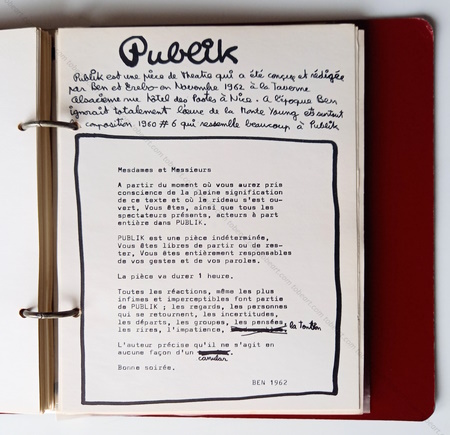 Publik
Publik est une pièce de theatre qui a été conçue et rédigée
par Ben et Erebo en Novembre 1962 à la Taverne
Alsacienne rue Hôtel des Postes à Nice. A l'époque Ben
ignorait totalement l'œuvre de la Monte Young et surtout
composition 1960 # 6 qui ressemble beaucoup à Publik
Mesdames et Messieurs
A partir du moment où vous aurez pris
conscience de la pleine signification
de ce texte et où le rideau s'est ou-
vert, Vous êtes, ainsi que tous les
spectateurs présents, acteurs à part
entière dans PUBLIK.
PUBLIK est une pièce indéterminée,
Vous êtes libres de partir ou de res-
ter, Vous êtes entièrement responsables
de vos gestes et de vos paroles.
La pièce va durer 1 heure.
Toutes les réactions, même les plus
infimes et imperceptibles font partie
de PUBLIK ; les regards, les personnes
qui se retournent, les incertitudes,
les départs, les groupes, les pensées,
les rires, l'impatience, la
L'auteur précise qu'il ne s'agit en
aucune façon d'un canular.
Bonne soirée.
BEN 1962